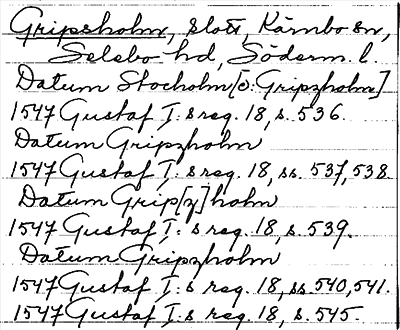 Gripsholm, slott, Kärnbo sn,
Selebo hd, Söderm. l.
Datum Stocholm [o: Gripzholm]
1547 Gustaf I: s reg. 18, s. 536.
Datum Gripzholm
1547 Gustaf I: s reg. 18, ss. 537, 538
Datum Grip[z]holm
1547 Gustaf I: s reg. 18, s. 539.
Datum Gripzholm
1547 Gustaf I: s reg. 18, ss. 540, 541.
1547 Gustaf I: s reg. 18, s. 545.